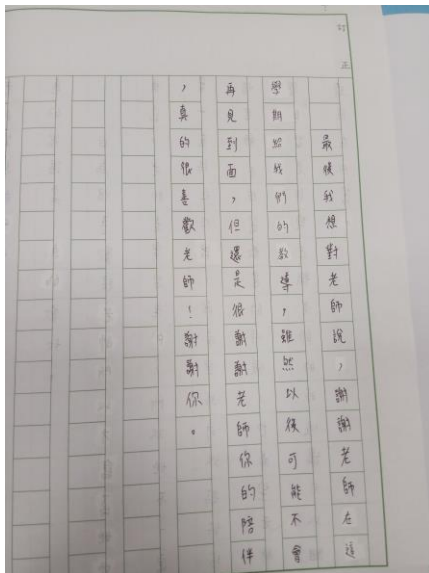 訂正
最後我想對老師說，謝謝老師在這
學期給我們的教導，雖然以後可能不會
再見到面，但還是很謝謝老師你的陪伴
，真的很喜歡老師！謝謝你。